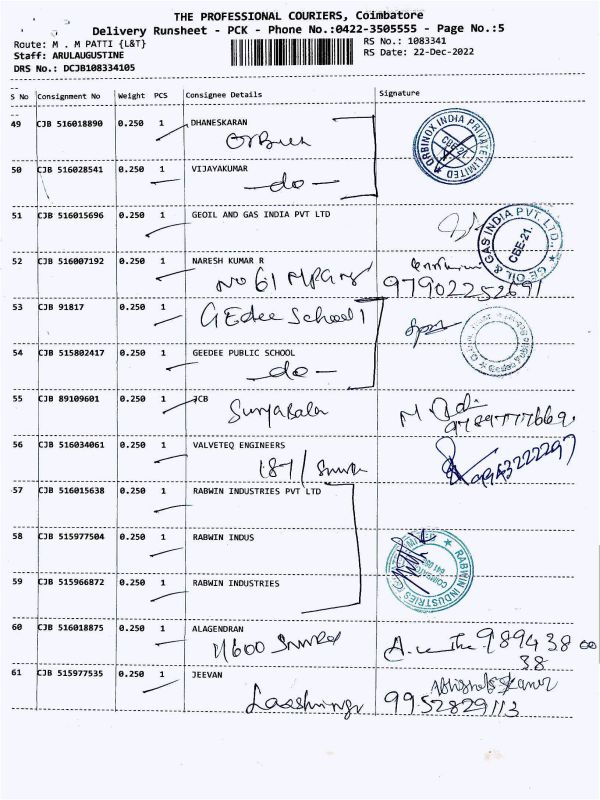 THE PROFESSIONAL COURIERS, Coimbatore
Delivery Runsheet - PCK - Phone No.:0422-3505555 - Page No.:5
Route: M . M PATTI {L&T}
RS No.: 1083341
Staff: ARULAUGUSTINE
RS Date: 22-Dec-2022
DRS No.: DCJB108334105
S No Consignment No Weight PCS Consignee Details Signature
49 CJB 516018890 0.250 1 DHANESKARAN
ORBINOX INDIA PRIVATE LIMITED
CBE-21.
50 CJB 516028541 0.250 1 VIJAYAKUMAR
-do-
51 CJB 516015696 0.250 1 GEOIL AND GAS INDIA PVT LTD
GE OIL & GAS INDIA PVT. LTD.,
CBE-21.
52 CJB 516007192 0.250 1 NARESH KUMAR R
No 61
97902252691
53 CJB 91817 0.250 1 GEdee School
54 CJB 515802417 0.250 1 GEEDEE PUBLIC SCHOOL
-do-
55 CJB 89109601 0.250 1 JCB
SuryaBala
9789777669
56 CJB 516034061 0.250 1 VALVETEQ ENGINEERS
187/
57 CJB 516015638 0.250 1 RABWIN INDUSTRIES PVT LTD
58 CJB 515977504 0.250 1 RABWIN INDUS
59 CJB 515966872 0.250 1 RABWIN INDUSTRIES
RABWIN INDUSTRIES
60 CJB 516018875 0.250 1 ALAGENDRAN
9894 38 00
38
61 CJB 515977535 0.250 1 JEEVAN
9952829113